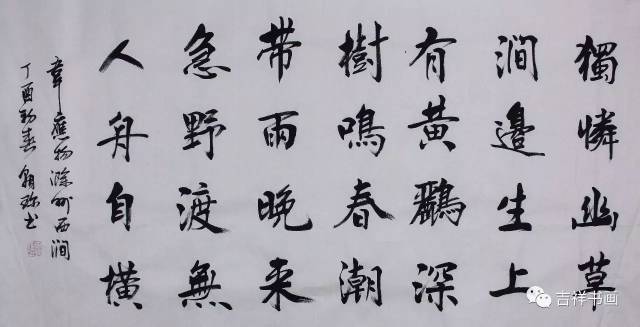 獨憐幽草
澗邊生上
有黃鸝深
樹鳴春潮
带雨晚来
急野渡無
人舟自橫
韋應物滁州西澗
丁酉初春书
吉祥书画